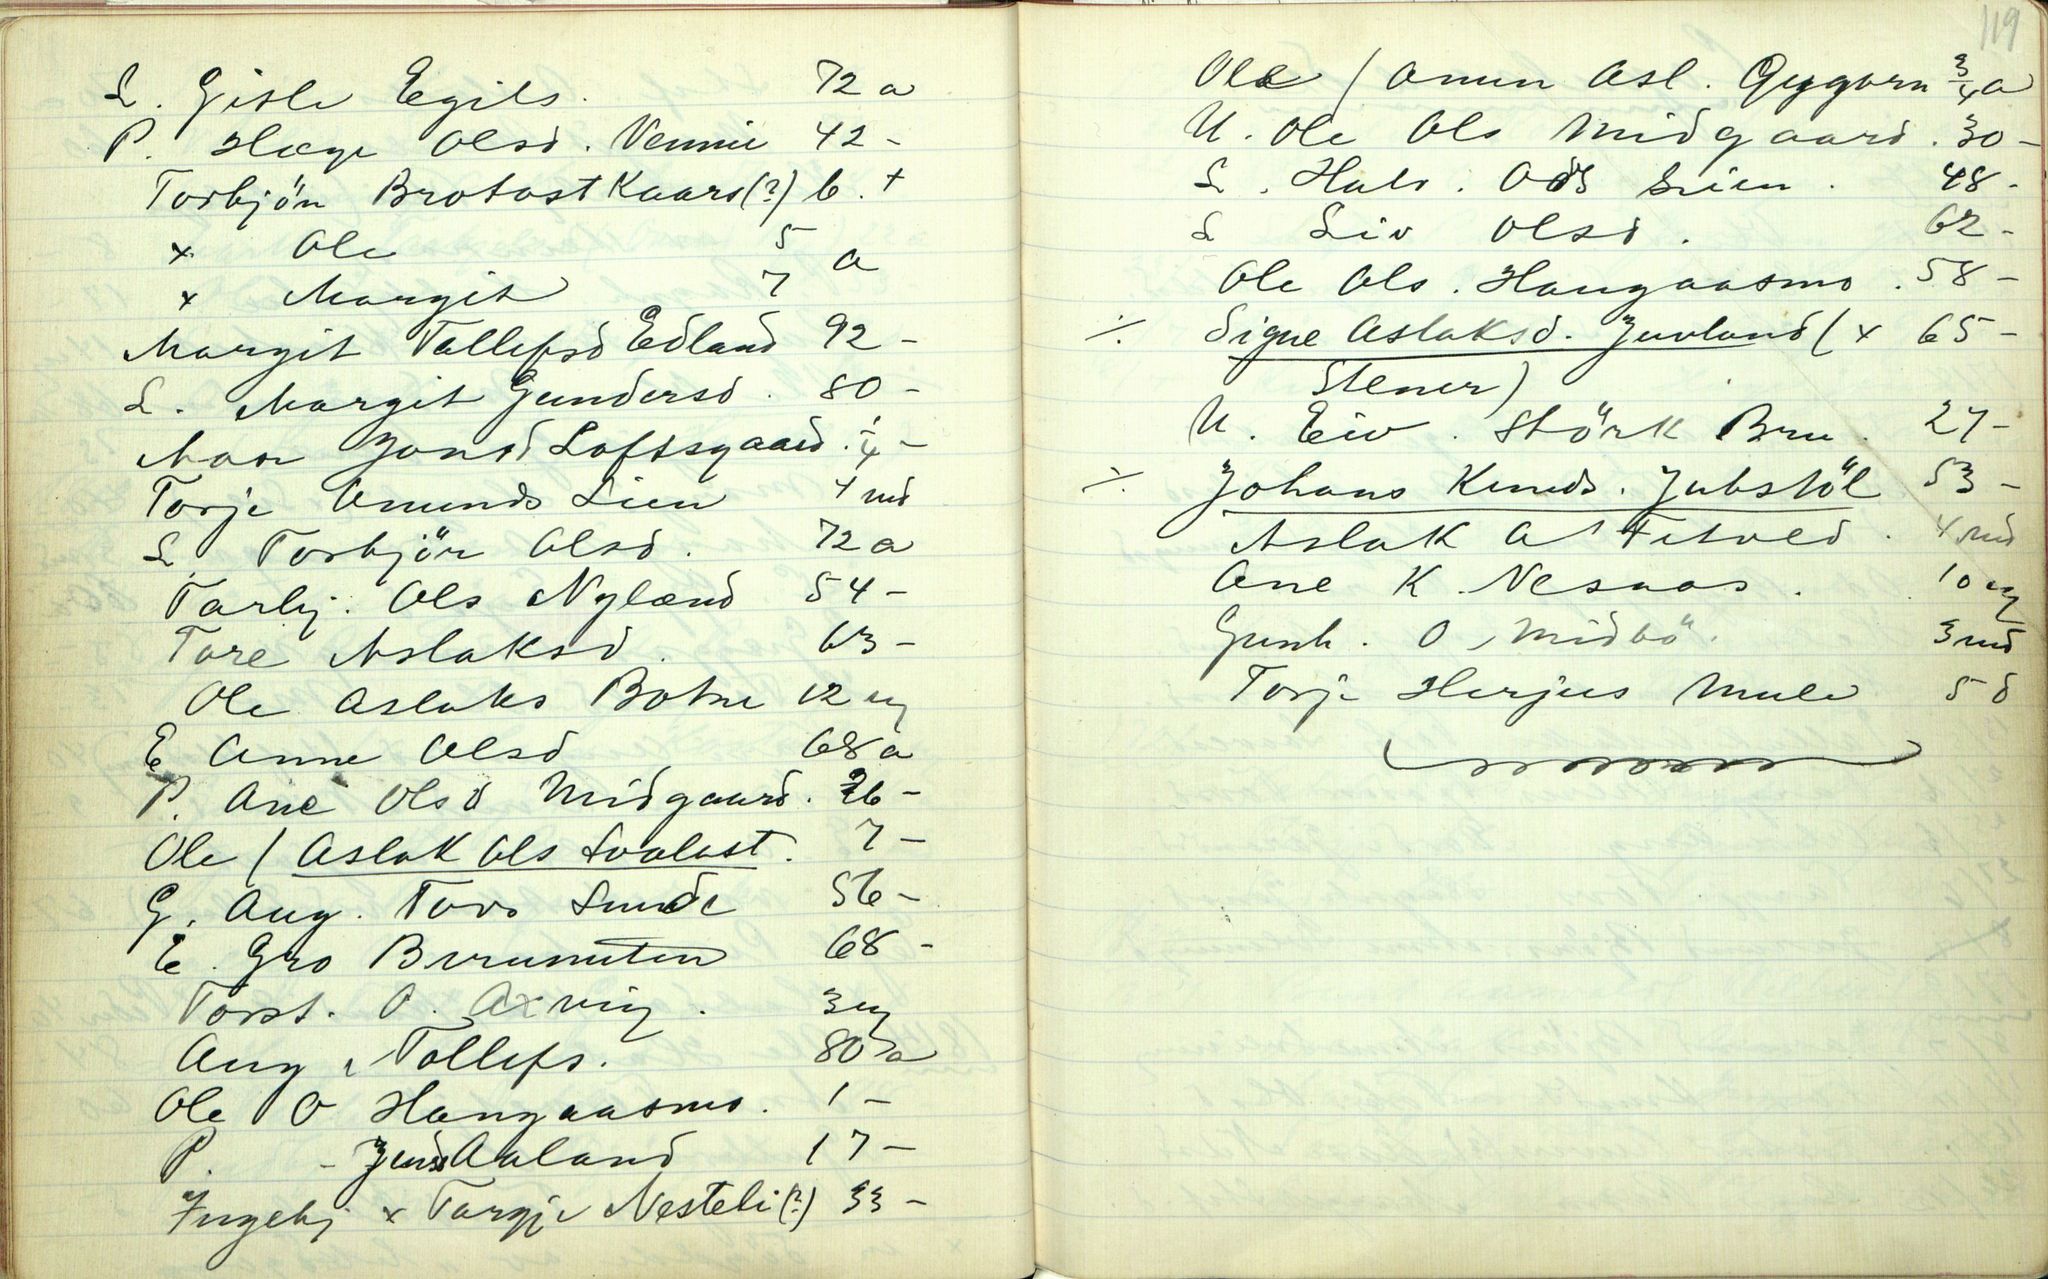 L. Gisle Egils. 72 a
P. Hæge Olsd. Vennie 42 -
Torbjön Brotast Kaars(?) 6. +
x Ole 5 a
x Margit 7
Margit Tallefsd Edland 92 -
L. Margit Gundersd. 80 -
Jonsd Loftsgaard. 1/4 -
Torje Amunds Lien 4 md
L. Torbjör Olsd. 72 a
Tarbj. Ols Nyland 54 -
Tore Aslaksd. 63 -
Ole Aslaks Botne 12
E Anne Olsd 68 a
P. Ane Olsd Midgaard. 26 -
Ole / Aslak Ols Svalast. 7 -
G. Aug. Tovs Sunde 56 -
E. Gro 68 -
Torst. O. 3
Aug. Tollefs. 80 a
Ole O Haugaasmo. 1 -
P. - Aaland 17 -
Ingebj x Targje Nesteli(?) 33 -
119
Ole / Amun Asl. 3/4 a
U. Ole Ols Midgaard. 30 -
L. Halv. Lien. 48 -
L Liv Olsd. 62 -
Ole Ols. Haugaasmo. 58 -
÷ Signe Aslaksd. Juvland (x 65 -
Stener)
U. Eiv. Störk Bru. 27 -
÷ Johans Knuds. Jubstöl 53 -
Aslak A Fetved. 4 md
Ane K. Nesaas. 10
Gunh. O Midbö. 3 md
Torje Herjus Mule 5 d